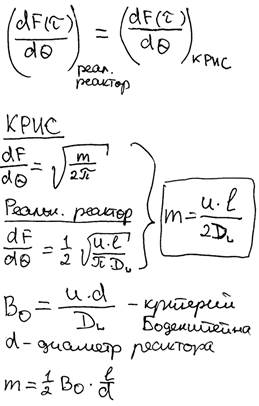 (dF(τ)/dΘ) реал. реактор = (dF(τ)/dΘ) КРИС
КРИС
dF/dΘ = √(m/2π)
Реальн. реактор
dF/dΘ = 1/2 √(u·l/πD_L)
m = u·l/2D_L
B_0 = u·d/D_L – критерий Боденштейна
d – диаметр реактора
m = 1/2 B_0 · l/d